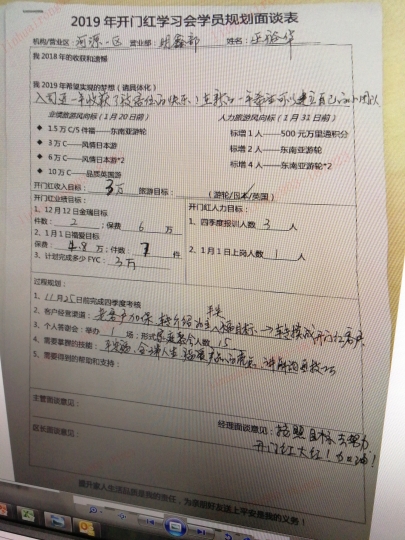 2019年开门红学习会学员规划面谈表
机构/营业区：河源一区 营业部：明鑫部 姓名：巫裕华
我2018年的收获和遗憾
我2019年希望实现的梦想（请具体化）
入司近一年收获了被信任的快乐！在新的一年希望可以建立自己的小团队
业绩旅游风向标（1月20日前） 人力旅游风向标（1月31日前）
◆ 1.5万C/5件福——东南亚游轮 标增1人——500元万里通积分
◆ 3万C——风情日本游 标增2人——东南亚游轮
◆ 6万C——风情日本游*2 标增4人——东南亚游轮*2
◆ 10万C——品质英国游
开门红收入目标：3万 旅游目标： （游轮/日本/英国）
开门红业绩目标： 开门红人力目标：
1、12月12日金瑞目标 1、四季度报训人数 3 人
件数：2；保费 6 万
2、1月1日福爱目标 2、1月1日上岗人数 1 人
保费：1.8万；件数：7 件
3、计划完成多少FYC：3万
过程规划：
1、11月25日前完成四季度考核
2、客户经营渠道：老客户加保 转介绍
3、个人答谢会：举办 1 场；形式 人数 15
4、需要掌握的技能：平安福、全满人生
5、需要得到的帮助和支持：
主管面谈意见：
经理面谈意见：按照目标去努力
区长面谈意见： 开门红大红！加油！
提升家人生活品质是我的责任，为亲朋好友送上平安是我的义务！